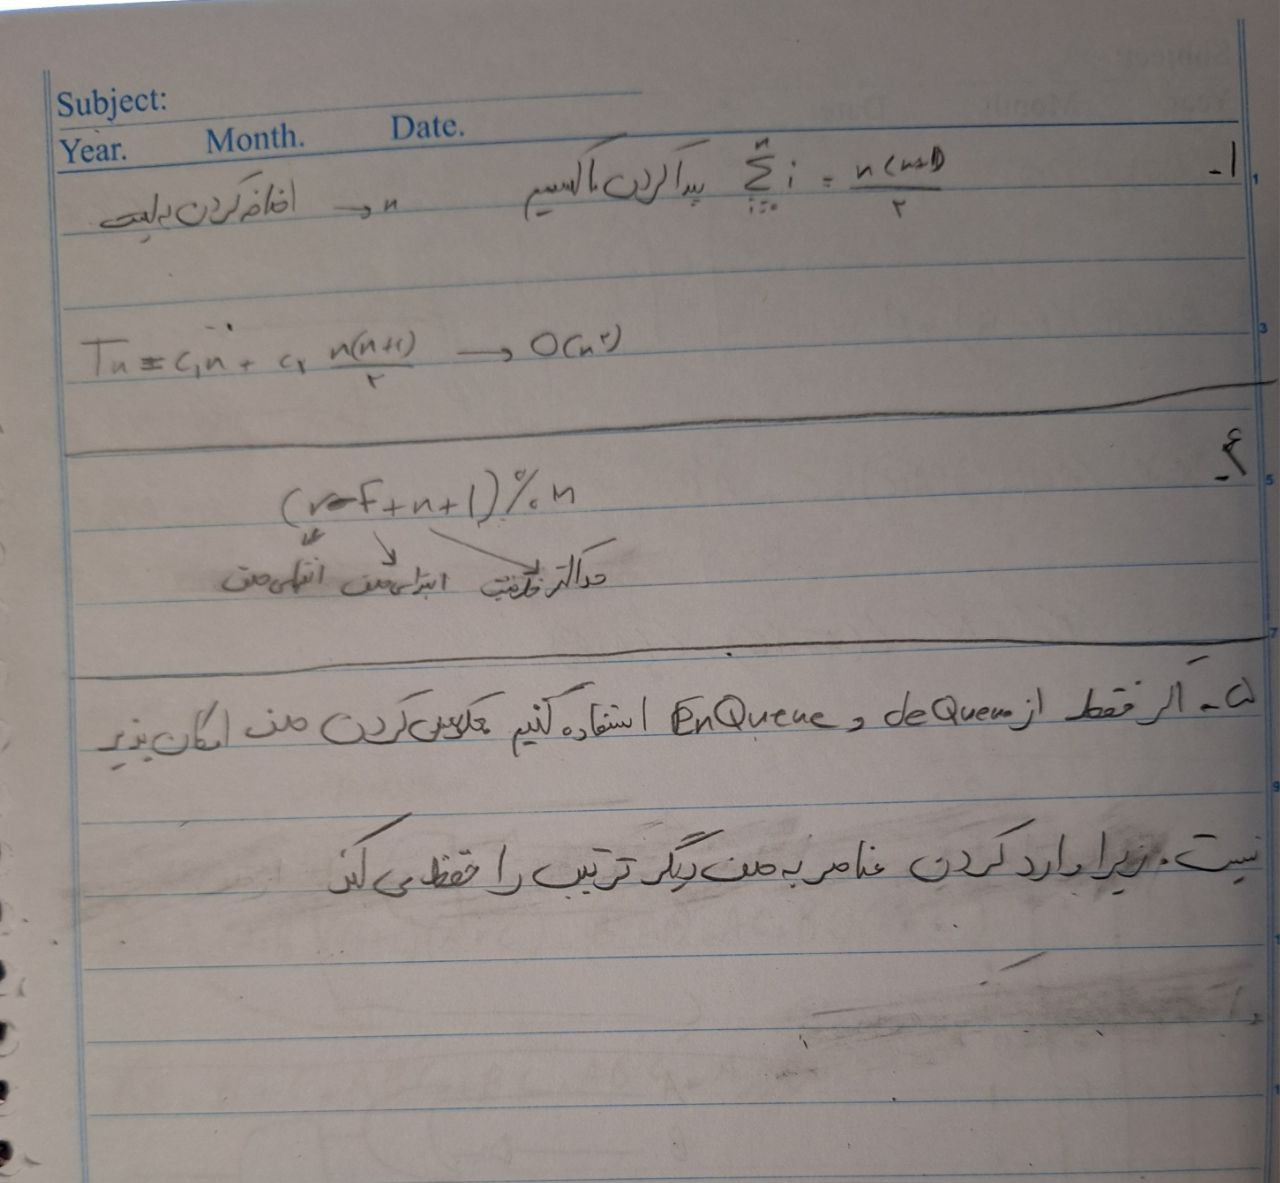 Subject:
Year. Month. Date.
۱- پیدا کردن ماکسیمم \sum_{i=0}^{n} i = \frac{n(n+1)}{۲}
اضافه کردن به لیست → n
Tn = c₁n + c₂ \frac{n(n+1)}{۲} → O(n^۲)
۴-
(r-F+n+1)%n
انتهای صف ابتدای صف حداکثر ظرفیت
۵- اگر فقط از deQueue و EnQueue استفاده کنیم معکوس کردن صف امکان پذیر
نیست. زیرا وارد کردن عناصر به صف دیگر ترتیب را حفظ می کند